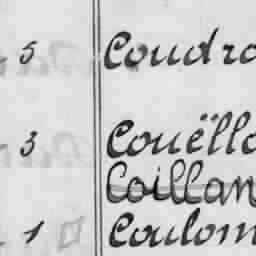 5 Coudro
3 Couëlla
Coillan
1 Coulom